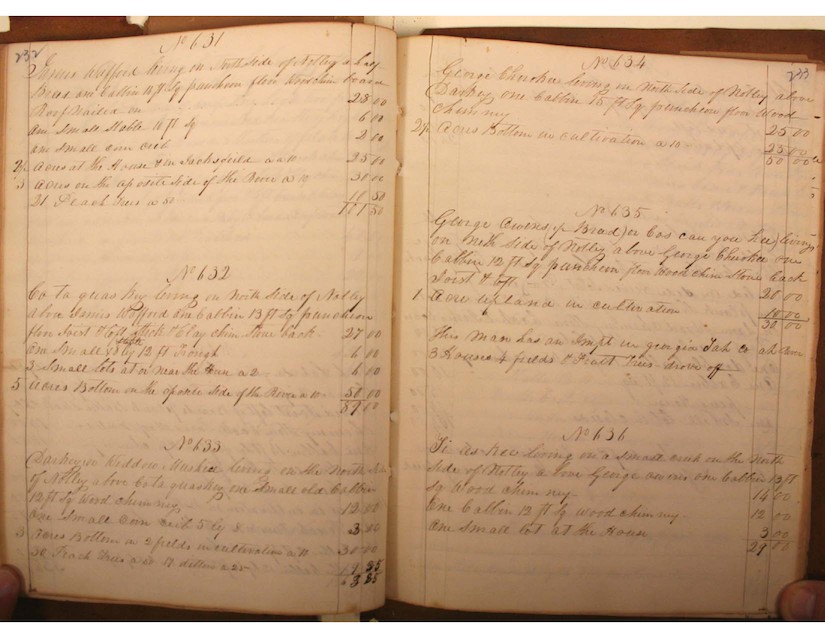 232
No 631
James Wafford living on North Side of Notley a half
Bred one Cabbin 16 ft Sq puncheon floor Wood chim board
Roof Nailed on 28 00
one Small Stable 16 ft Sq 6 00
one Small corn crib 2 00
2½ Acres at the House & in Jacksfield a a 10 25 00
3 Acres on the oposite Side of the River a 10 30 00
21 Peach Trees a 50
111 50
No 632
Co ta quas key living on North Side of Notley
above James Wafford one Cabbin 13 ft Sq puncheon
floor Joist & loft Stick & Clay chim Stone back 27 00
one Small by 12 ft 6 00
3 Small lots at or near the House a 2 6 00
5 Acres Bottom on the oposite Side of the River a 10 50 00
89 00
No 633
Darkey Widdow living on the North Side
of Notley above Co ta quaskey one Small old Cabbin
12 ft Sq Wood chimney 12 00
One Small Corn crib 5 by 8 3 00
3 Acres Bottom in 2 fields in cultivation a 10 30 00
30 Peach Trees a 17 a 25
233
No 634
George Cherokee living on North Side of Notley above
Darkey one Cabbin 15 ft Sq puncheon floor Wood
chimney 25 00
2½ Acres Bottom in cultivation a 10 25 00
50 00
No 635
George Owens living
on North Side of Notley above George Cherokee one
Cabbin 12 ft Sq puncheon floor Wood chim Stone back
Joist & loft 20 00
1 Acre upland in cultivation 10 00
30 00
This Man has an Impt in georgia
3 Houses 4 fields & Fruit trees drove off
No 636
living on a small creek on the North
Side of Notley above George owens one Cabbin 13 ft
Sq Wood chimney 14 00
One Cabbin 12 ft Sq Wood chimney 12 00
One Small lot at the House 3 00
29 00